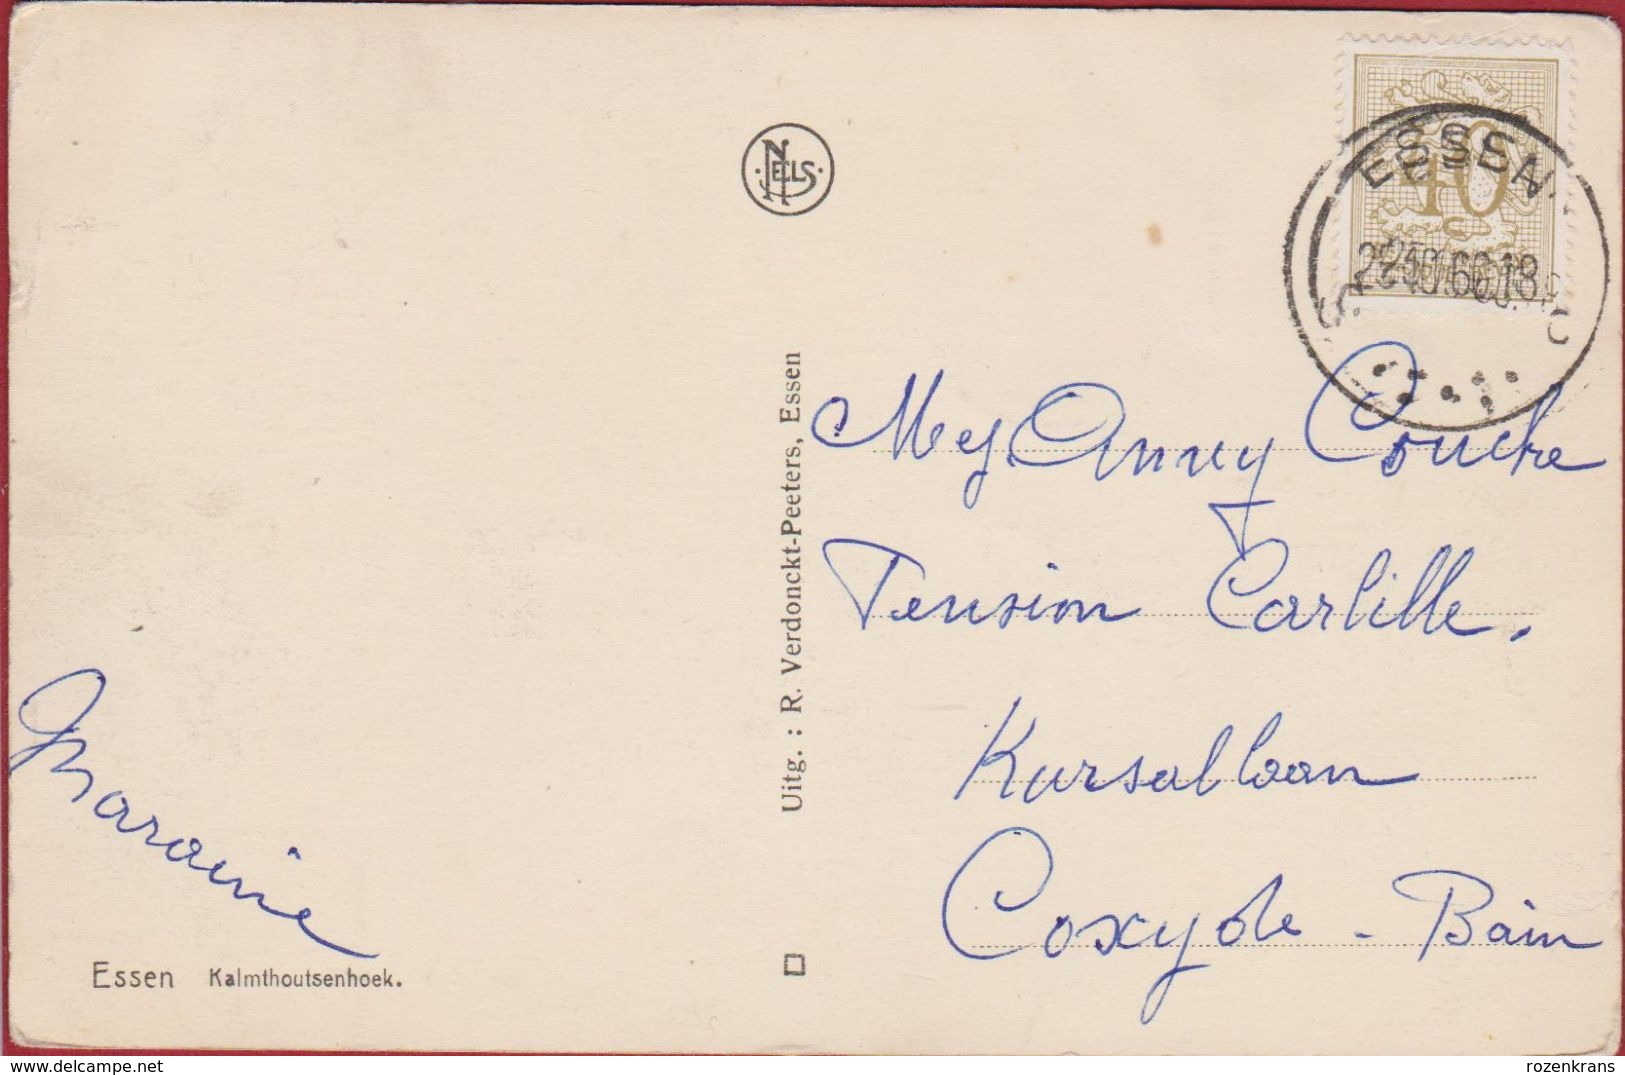 NELS
ESSEN
40
Uitg. : R. Verdonckt-Peeters, Essen
Mej. Anny Couche
Pension Carlille.
Kursallaan
Coxyde - Bain
Marraine
Essen Kalmthoutsenhoek.
www.delcampe.net
rozenkrans